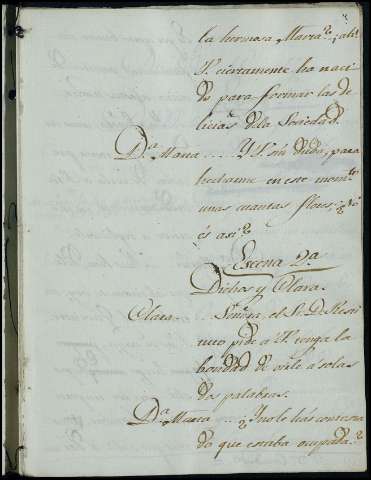 la hermosa Maria? ¡ah!
V. ciertamente ha naci
do para formar las de
licias de la Sociedad.
Dª Maria .... Y V. sin duda, para
hecharme en este momto
unas cuantas flores; ¿No
és asi?
Escena 2ª
Dichos y Clara.
Clara. Señora, el Sr. D.
nico pide a V. tenga la
bondad de oirle á solas
dos palabras.
Dª Maria ... ¿No le hás contesta
do que estaba ocupada?